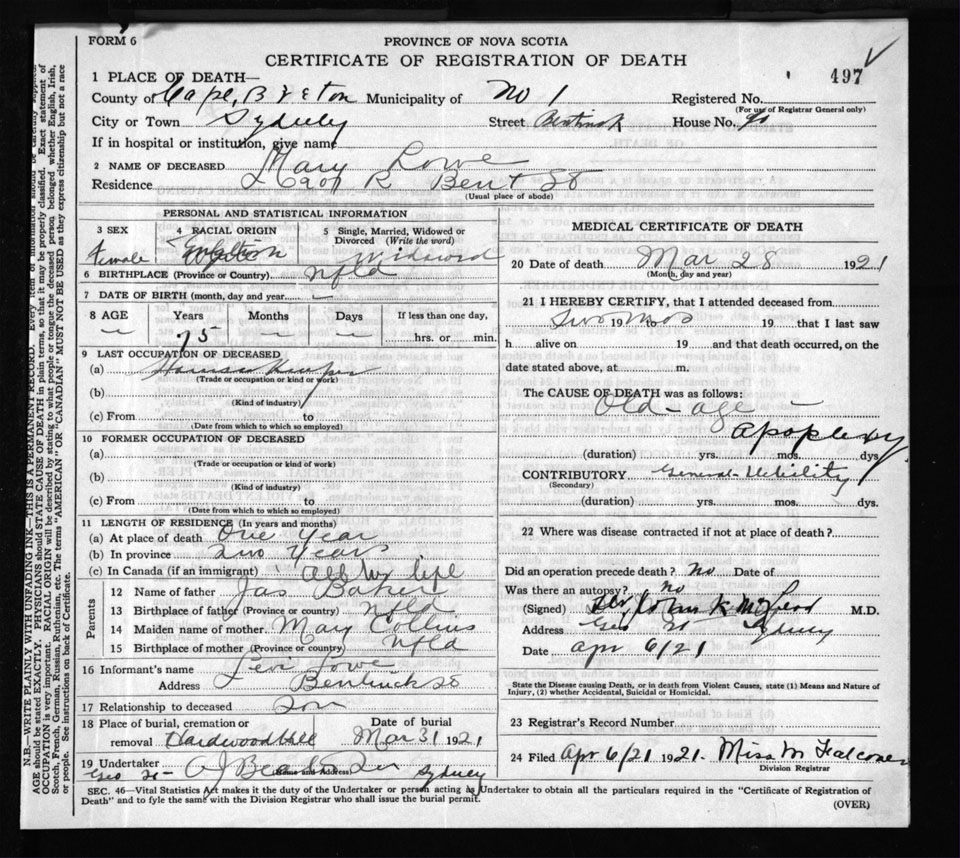 FORM 6
PROVINCE OF NOVA SCOTIA
CERTIFICATE OF REGISTRATION OF DEATH
497
1 PLACE OF DEATH—
County of Cape Breton Municipality of No 1 Registered No.
(For use of Registrar General only)
City or Town Sydney Street Bentinck House No. 90
If in hospital or institution, give name
2 NAME OF DECEASED Mary Lowe
Residence R Bent St
(Usual place of abode)
PERSONAL AND STATISTICAL INFORMATION
3 SEX 4 RACIAL ORIGIN 5 Single, Married, Widowed or Divorced (Write the word)
Female Widowed
6 BIRTHPLACE (Province or Country) Nfld
7 DATE OF BIRTH (month, day and year) —
8 AGE Years Months Days If less than one day,
— 75 — — hrs. or min.
9 LAST OCCUPATION OF DECEASED
(a) House Keeper
(Trade or occupation or kind or work)
(b)
(Kind of industry)
(c) From to
(Date from which to which so employed)
10 FORMER OCCUPATION OF DECEASED
(a)
(Trade or occupation or kind of work)
(b)
(Kind of industry)
(c) From to
(Date from which to which so employed)
11 LENGTH OF RESIDENCE (In years and months)
(a) At place of death One Year
(b) In province Two Years
(c) In Canada (if an immigrant) All her life
Parents
12 Name of father Jas Baker
13 Birthplace of father (Province or country) Nfld
14 Maiden name of mother Mary Collins
15 Birthplace of mother (Province or country) Nfld
16 Informant's name Levi Lowe
Address Bentinck St
17 Relationship to deceased Son
18 Place of burial, cremation or removal Hardwood Hill
Date of burial Mar 31 1921
19 Undertaker A J Beaton Sydney
(Name and Address)
MEDICAL CERTIFICATE OF DEATH
20 Date of death Mar 28 1921
(Month, day and year)
21 I HEREBY CERTIFY, that I attended deceased from
two 19 mos to 19 that I last saw
h alive on 19 and that death occurred, on the
date stated above, at m.
The CAUSE OF DEATH was as follows:
Old-age —
Apoplexy
(duration) yrs. mos. dys.
CONTRIBUTORY General Debility
(Secondary)
(duration) yrs. mos. dys.
22 Where was disease contracted if not at place of death?
Did an operation precede death? No Date of
Was there an autopsy? No
(Signed) John K McLeod M.D.
Address Geo St Sydney
Date Apr 6/21
State the Disease causing Death, or in death from Violent Causes, state (1) Means and Nature of
Injury, (2) whether Accidental, Suicidal or Homicidal.
23 Registrar's Record Number
24 Filed Apr 6/21 1921. Miss M Falconer
Division Registrar
SEC. 46—Vital Statistics Act makes it the duty of the Undertaker or person acting as Undertaker to obtain all the particulars required in the "Certificate of Registration of
Death" and to fyle the same with the Division Registrar who shall issue the burial permit.
(OVER)
N.B.—WRITE PLAINLY WITH UNFADING INK—THIS IS A PERMANENT RECORD. Every item of information should be carefully supplied.
AGE should be stated EXACTLY. PHYSICIANS should STATE CAUSE OF DEATH in plain terms, so that it may be properly classified. Exact statement of
OCCUPATION is very important. RACIAL ORIGIN will be described by stating to what people or tongue the deceased person belonged whether English, Irish,
Scotch, French, German, Russian, Ruthenian, etc. The terms "AMERICAN" OR "CANADIAN" MUST NOT BE USED as they express citizenship but not a race
or people. See instructions on back of Certificate.